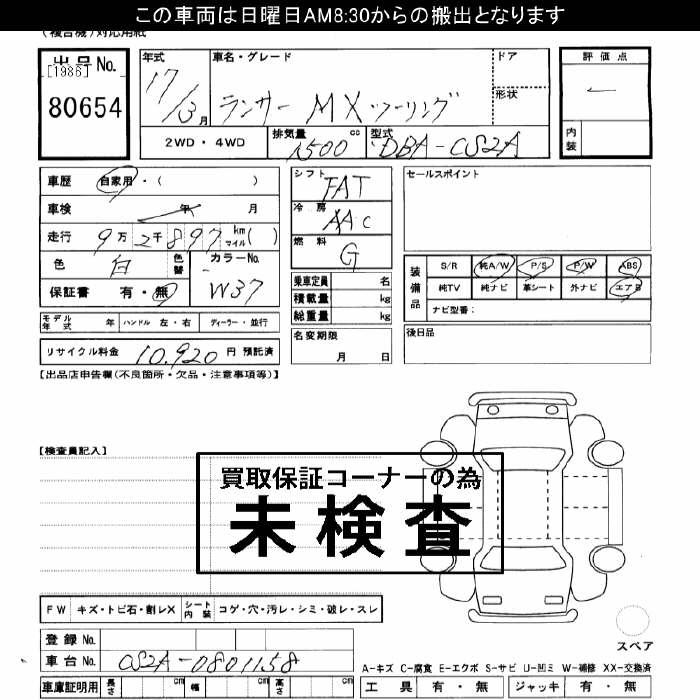 この車両は日曜日AM8:30からの搬出となります
(複合機)対応用紙
出品No. [1986] 80654
年式 17/3月 車名・グレード ランサー MX ツーリング ドア 形状
2WD・4WD 排気量 1500 cc 型式 DBA-CS2A
評価点 -
内装
車歴 自家用・( )
車検 年 月
走行 9万2千897 km マイル( )
色 白 色替 カラーNo. W37
保証書 有・無
シフト FAT
冷房 AAC
燃料 G
乗車定員 名
積載量 kg
総重量 kg
セールスポイント
装備品 S/R 純A/W P/S P/W ABS
純TV 純ナビ 革シート 外ナビ エアB
ナビ型番:
モデル年式 年 ハンドル 左・右 ディーラー・並行
名変期限 月 日
後日品
リサイクル料金 10,920 円 預託済
【出品店申告欄(不良箇所・欠品・注意事項等)】
【検査員記入】
買取保証コーナーの為
未検査
FW キズ・トビ石・割レX シート内装 コゲ・穴・汚レ・シミ・破レ・スレ
スペア
登録No.
車台No. CS2A-0801158
A-キズ C-腐食 E-エクボ S-サビ U-凹ミ W-補修 XX-交換済
車庫証明用 長さ cm 幅 cm 高さ cm
工具 有・無 ジャッキ 有・無